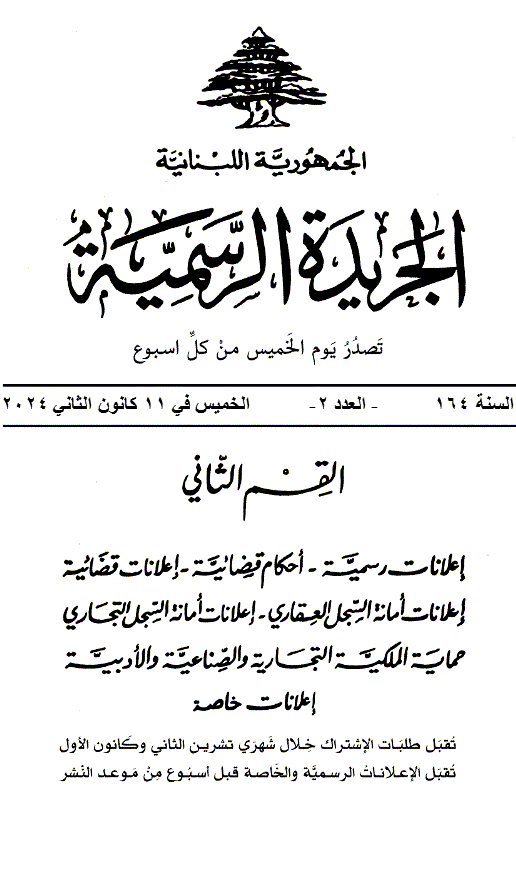 الجمهوريّة اللبنانيّة
الجريدة الرّسميّة
تَصدُرُ يَوم الخَميس منْ كلِّ اسبوع
السنة ١٦٤ - العدد ٢- الخميس في ١١ كانون الثاني ٢٠٢٤
القِسْم الثّاني
إعلانات رسميّة - أحكام قضائيّة - إعلانات قضائية
إعلانات أمانة السّجل العقاري - إعلانات أمانة السّجل التجاري
حماية الملكيّة التجارية والصّناعيّة والأدبيّة
إعلانات خاصة
تُقبَل طلبَات الإشتراك خِلال شَهرَي تشرين الثاني وكَانون الأول
تُقبَل الإعلاناتُ الرسميَّة والخَاصة قبل أسبُوع مِنْ مَوعد النَشر